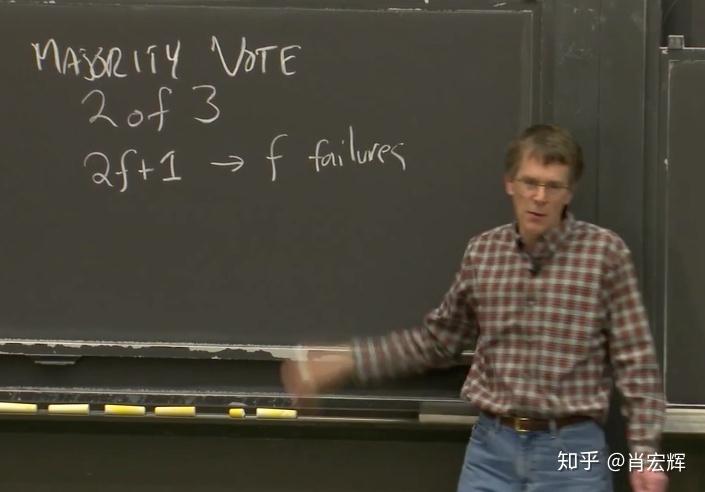 MAJORITY VOTE
2 of 3
2f+1 → f failures
知乎 @肖宏辉